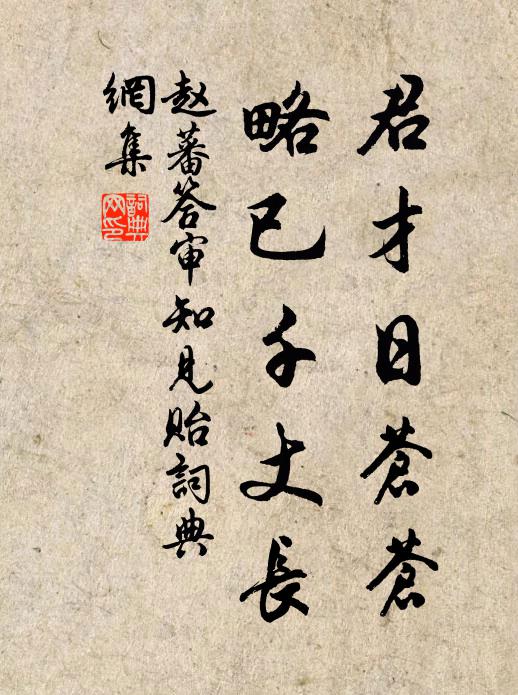 君才日蒼蒼
略已千丈長
赵蕃答审知見貽詞典
網集
詞典
网印